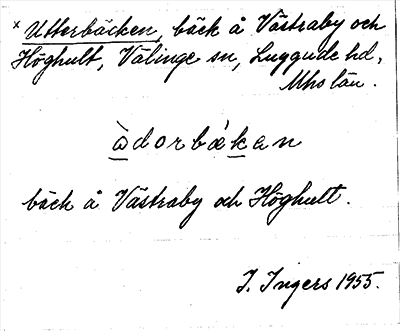 × Utterbäcken, bäck å Västraby och
Höghult, Välinge sn, Luggude hd,
Mhs län.
àdorbákan
bäck å Västraby och Höghult.
I. Ingers 1955.